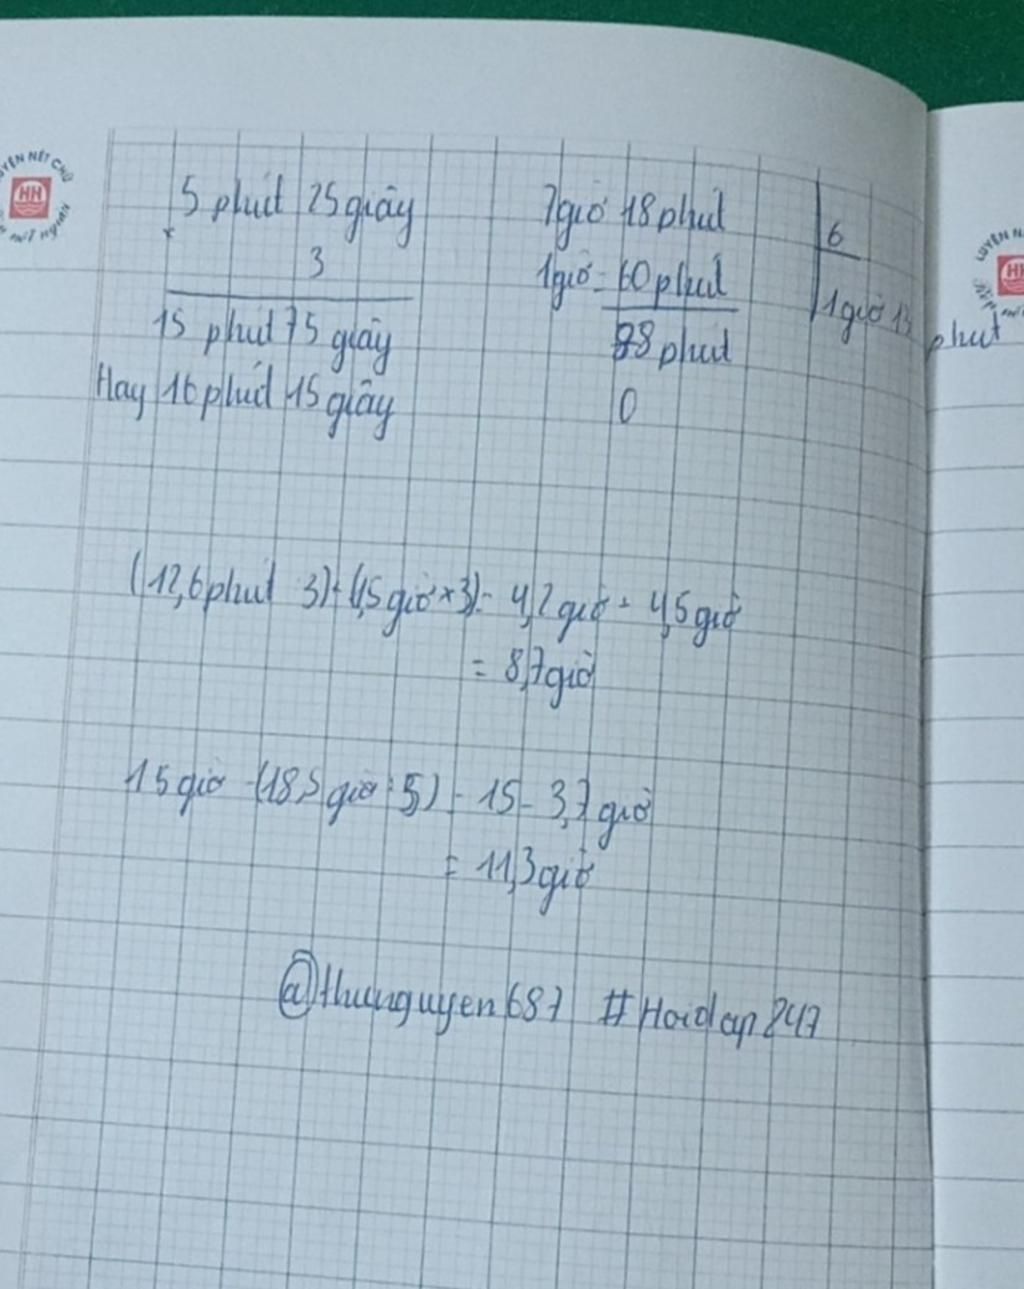 5 phút 25 giây
×
3
15 phút 75 giây
Hay 16 phút 15 giây
7 giờ 18 phút
6
1 giờ = 60 phút
1 giờ 13 phút
78 phút
0
(12,6 phút 3) + (1,5 giờ × 3) = 4,2 giờ + 4,5 giờ
= 8,7 giờ
15 giờ - (18,5 giờ : 5) = 15 - 3,7 giờ
= 11,3 giờ
@thungnguyen687 #Hoidap247
HH
HH